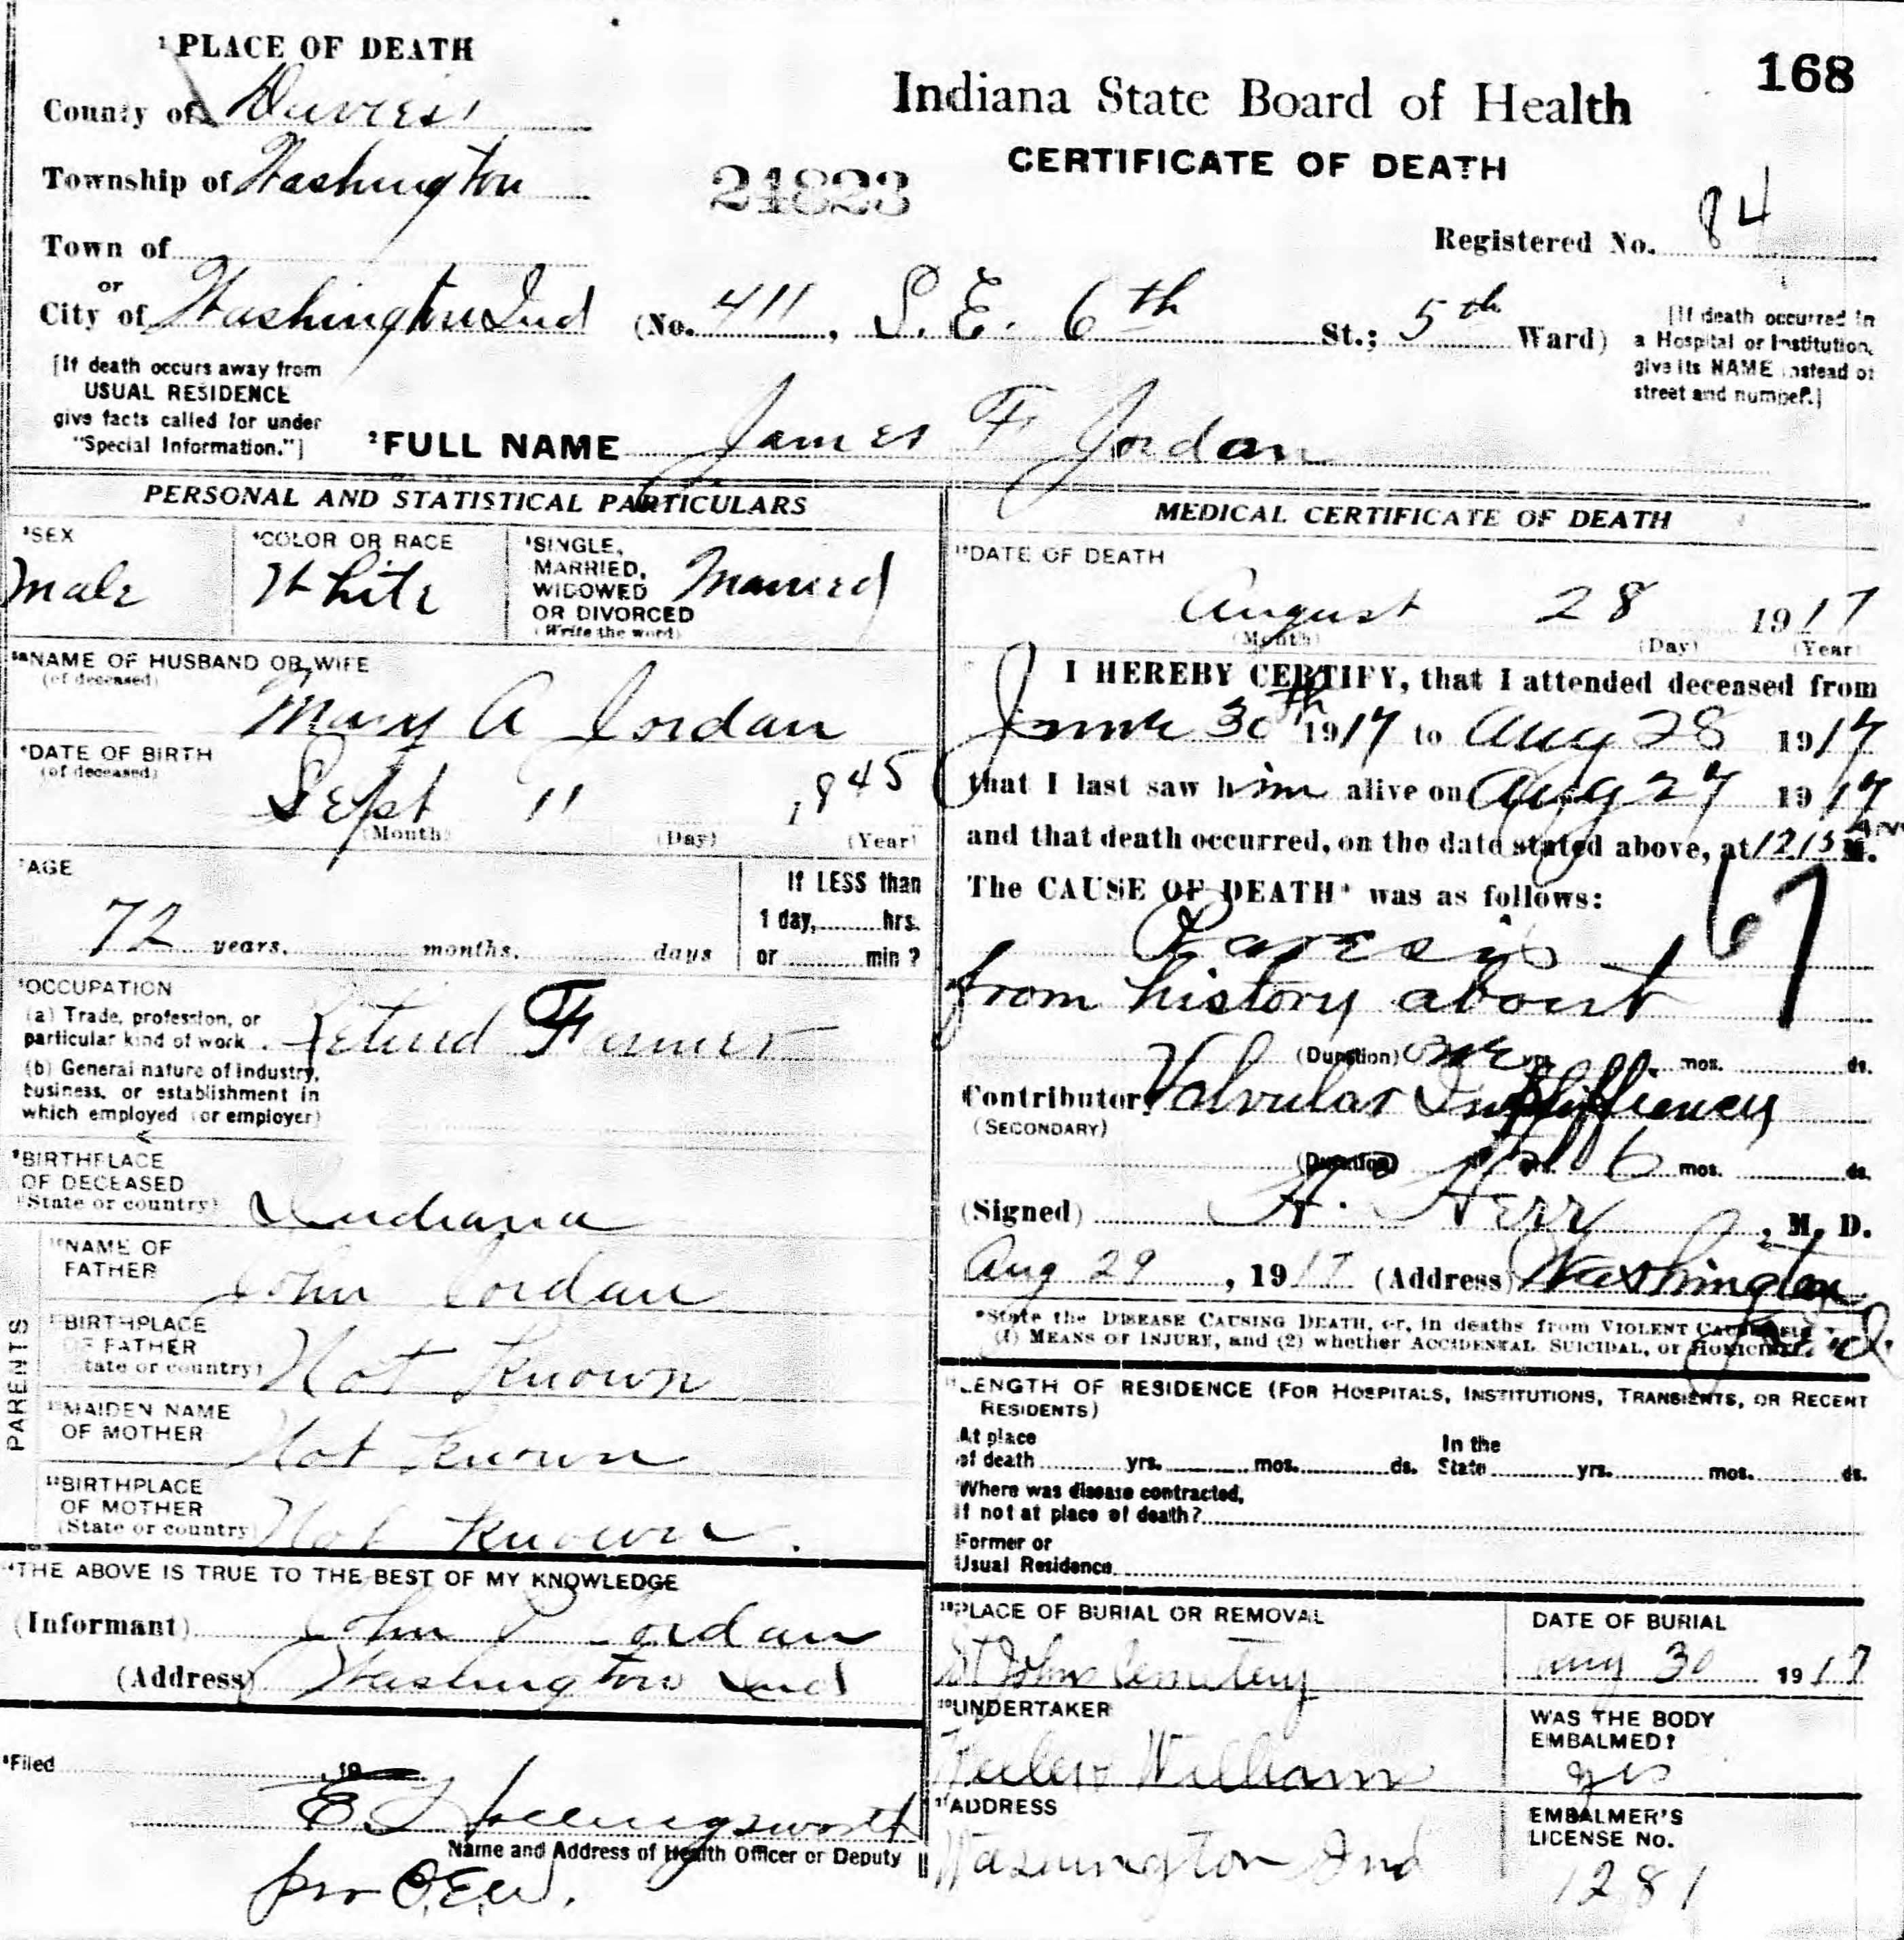 168
¹PLACE OF DEATH
County of Daviess
Township of Washington
Town of
or
City of Washington Ind (No. 411, S. E. 6th St.; 5th Ward)
Indiana State Board of Health
CERTIFICATE OF DEATH
24823
Registered No. 84
[If death occurred in
a Hospital or Institution,
give its NAME instead of
street and number.]
[If death occurs away from
USUAL RESIDENCE
give facts called for under
"Special Information."]
²FULL NAME James F Jordan
PERSONAL AND STATISTICAL PARTICULARS
³SEX
Male
⁴COLOR OR RACE
White
⁵SINGLE,
MARRIED,
WIDOWED
OR DIVORCED
(Write the word)
Married
⁵ᵃNAME OF HUSBAND OR WIFE
(of deceased)
Mary A Jordan
⁶DATE OF BIRTH
(of deceased)
Sept 11 1845
(Month) (Day) (Year)
⁷AGE
72 years, months, days
If LESS than
1 day, hrs.
or min?
⁸OCCUPATION
(a) Trade, profession, or
particular kind of work
Retired Farmer
(b) General nature of industry,
business, or establishment in
which employed (or employer)
⁹BIRTHPLACE
OF DECEASED
(State or country)
Indiana
PARENTS
¹⁰NAME OF
FATHER
John Jordan
¹¹BIRTHPLACE
OF FATHER
(State or country)
Not Known
¹²MAIDEN NAME
OF MOTHER
Not Known
¹³BIRTHPLACE
OF MOTHER
(State or country)
Not Known.
¹⁴THE ABOVE IS TRUE TO THE BEST OF MY KNOWLEDGE
(Informant) John Jordan
(Address) Washington Ind
Filed , 19
E Hollingsworth
Name and Address of Health Officer or Deputy
per O.E.W.
MEDICAL CERTIFICATE OF DEATH
DATE OF DEATH
August 28 1917
(Month) (Day) (Year)
I HEREBY CERTIFY, that I attended deceased from
June 30th 1917 to Aug 28 1917
that I last saw him alive on Aug 27 1917
and that death occurred, on the date stated above, at 12 15 AM M.
The CAUSE OF DEATH* was as follows:
67
Paresis
from history about
(Duration) one yrs. mos. ds.
Contributory Valvular Insufficiency
(SECONDARY)
(Duration) yrs. 6 mos. ds.
(Signed) A. Herr, M. D.
Aug 29, 1917 (Address) Washington
Ind.
*State the DISEASE CAUSING DEATH, or, in deaths from VIOLENT CAUSES, state
(1) MEANS OF INJURY, and (2) whether ACCIDENTAL, SUICIDAL, or HOMICIDAL.
LENGTH OF RESIDENCE (FOR HOSPITALS, INSTITUTIONS, TRANSIENTS, OR RECENT
RESIDENTS)
At place
of death yrs. mos. ds.
In the
State yrs. mos. ds.
Where was disease contracted,
if not at place of death?
Former or
Usual Residence
PLACE OF BURIAL OR REMOVAL
St Johns Cemetery
DATE OF BURIAL
Aug 30 1917
UNDERTAKER
William
WAS THE BODY
EMBALMED?
yes
ADDRESS
Washington Ind
EMBALMER'S
LICENSE No.
1281